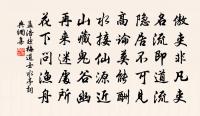 傲吏非凡吏
名流即道流
隱居不可見
高論莫能酬
水接仙源近
山藏鬼谷幽
再來迷處所
花下問漁舟
孟浩然梅道士水亭